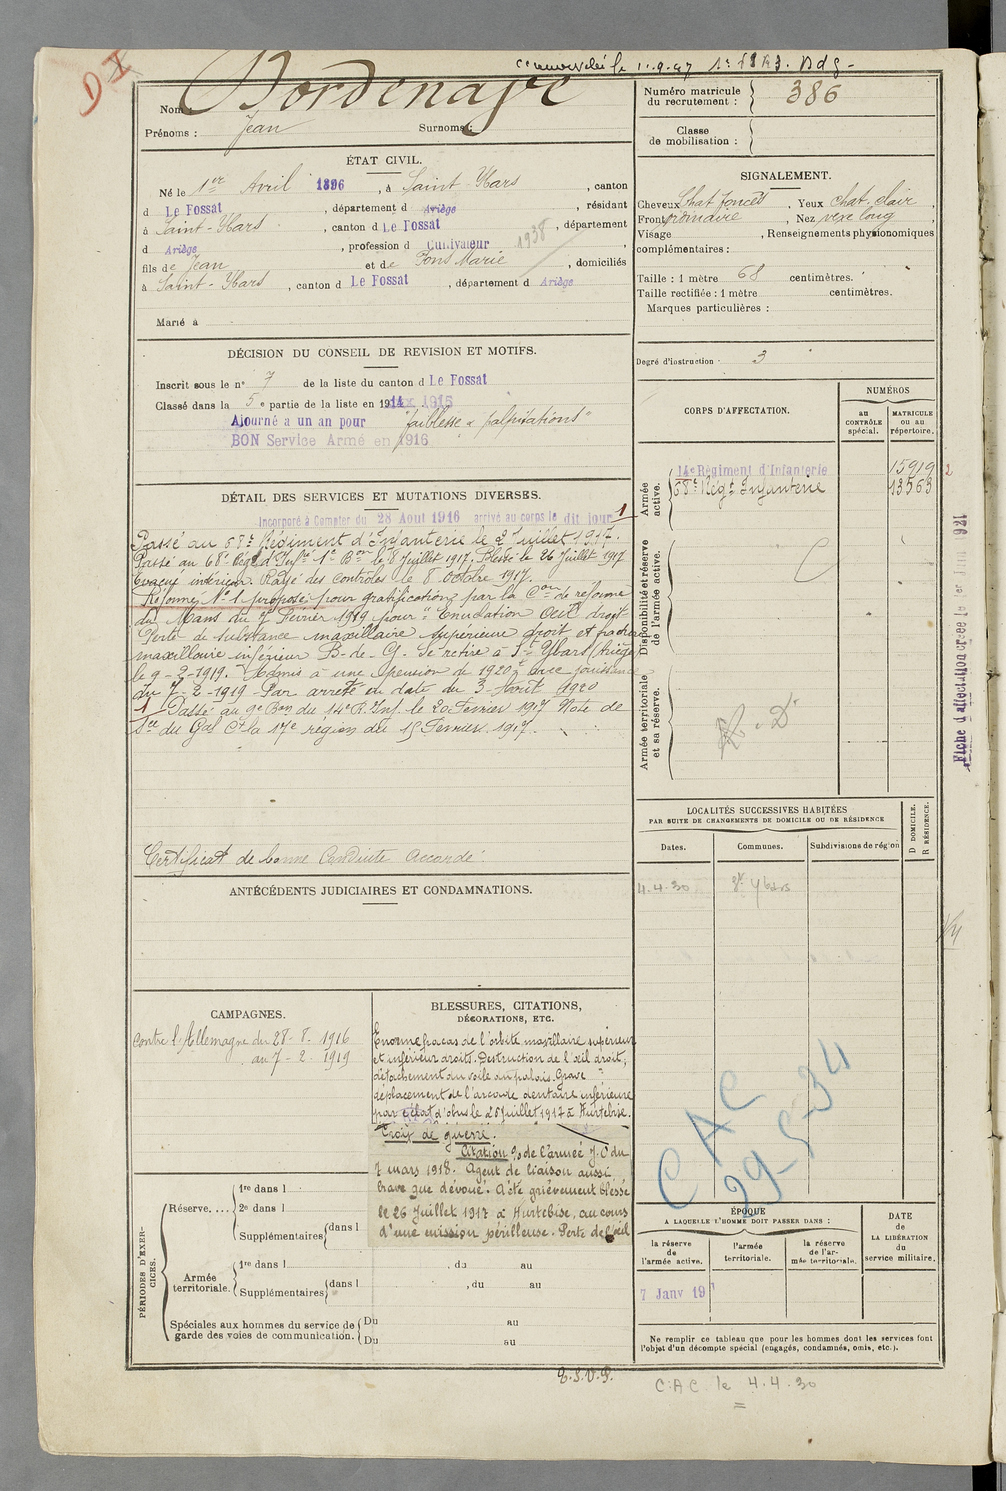 DI
le 1.9.47
Nom : Bordenave
Prénoms : Jean Surnoms :
Numéro matricule du recrutement : 386
Classe de mobilisation :
ÉTAT CIVIL.
Né le 1er Avril 1896, à Saint-Ybars, canton
d Le Fossat, département d Ariège, résidant
à Saint-Ybars, canton d Le Fossat, département
d Ariège, profession d Cultivateur 1938
fils de Jean et de Pons Marie, domiciliés
à Saint-Ybars, canton d Le Fossat, département d Ariège
Marié à
SIGNALEMENT.
Cheveux Chat foncés, Yeux chat. clair,
Front ordinaire, Nez vexe long,
Visage , Renseignements physionomiques
complémentaires :
Taille : 1 mètre 68 centimètres.
Taille rectifiée : 1 mètre centimètres.
Marques particulières :
Degré d'instruction : 3
DÉCISION DU CONSEIL DE REVISION ET MOTIFS.
Inscrit sous le n° 7 de la liste du canton d Le Fossat
Classé dans la 5e partie de la liste en 1915
Ajourné a un an pour "faiblesse & palpitations"
BON Service Armé en 1916
DÉTAIL DES SERVICES ET MUTATIONS DIVERSES.
Incorporé à Compter du 28 Aout 1916 arrivé au corps le dit jour 1
Passé au 68e Régiment d'Infanterie le 2 Juillet 1917.
Passé au 68e Régt d'Infie 1e Bon le 8 Juillet 1917. Blessé le 26 Juillet 1917
Evacué intérieur. Rayé des contrôles le 8 octobre 1917.
Réformé N° 1 proposé pour gratification par la Con de réforme
du Mans du 7 Février 1919 pour "Enucléation Oeil droit
Perte de substance maxillaire supérieure droit et fracture
maxillaire inférieur B. de G. Se retire à St Ybars Ariège
le 9-2-1919. Admis à une pension de 1920 avec jouissance
du 7-2-1919 Par arrêté en date du 3 Août 1920
1 Passé au 9e Bon du 14e R. Inf. le 20 Fevrier 1917 Note de
Sce du Gal Ct la 17e région du 15 Fevrier 1917.
Certificat de bonne Conduite Accordé.
CORPS D'AFFECTATION.
NUMÉROS
au CONTRÔLE spécial.
MATRICULE ou au répertoire.
Armée active.
14e Régiment d'Infanterie 15919 2
68e Régt Infanterie 13563
Disponibilité et réserve de l'armée active.
Armée territoriale et sa réserve.
R. D.
LOCALITÉS SUCCESSIVES HABITÉES
PAR SUITE DE CHANGEMENTS DE DOMICILE OU DE RÉSIDENCE
D DOMICILE.
R RÉSIDENCE.
Dates. Communes. Subdivisions de région
4.4.30 St Ybars
ANTÉCÉDENTS JUDICIAIRES ET CONDAMNATIONS.
CAMPAGNES.
Contre l'Allemagne du 28-8-1916
au 7-2-1919
BLESSURES, CITATIONS,
DÉCORATIONS, ETC.
Enorme fracas de l'orbite maxillaire supérieur
et inférieur droits. Destruction de l'œil droit,
détachement du voile du palais. Grave
déplacement de l'arcade dentaire inférieure
par éclat d'obus le 25 juillet 1917 à Hurtebise.
Croix de guerre.
Citation % de l'armée J.O du
7 mars 1918. Agent de liaison aussi
brave que dévoué. A été grièvement blessé
le 26 Juillet 1917 à Hurtebise, au cours
d'une mission périlleuse. Perte de l'œil
CAC
29-5-34
PÉRIODES D'EXERCICES.
Réserve....
1re dans l
2e dans l
Supplémentaires dans l
Armée territoriale.
1re dans l , du au
Supplémentaires dans l , du au
Spéciales aux hommes du service de
garde des voies de communication.
Du au
Du au
ÉPOQUE
A LAQUELLE L'HOMME DOIT PASSER DANS :
la réserve de l'armée active.
l'armée territoriale.
la réserve de l'armée territoriale.
DATE DE LA LIBÉRATION du service militaire.
7 Janv 19
Ne remplir ce tableau que pour les hommes dont les services font
l'objet d'un décompte spécial (engagés, condamnés, omis, etc.).
T.S.V.P.
C.A.C. le 4.4.30
Fiche d'affectation créée le 1er